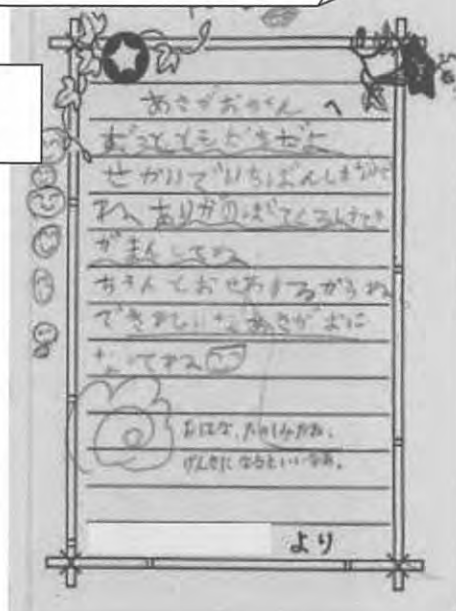 あさがおさんへ
ずっとともだちだよ
せかいでいちばん
ね。ありがのぼってくるけど
がまんしてね
ちゃんとおせわするからね
できれいなあさがおに
なってね
おはな、たのしみだね。
げんきになるといいなあ。
より